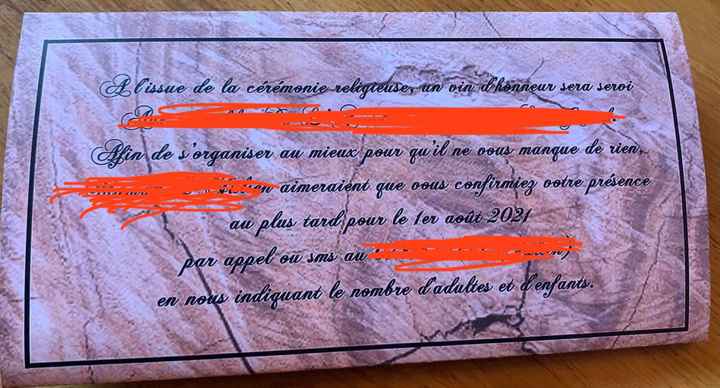 A l'issue de la cérémonie religieuse, un vin d'honneur sera servi
Afin de s'organiser au mieux pour qu'il ne vous manque de rien,
aimeraient que vous confirmiez votre présence
au plus tard pour le 1er août 2021
par appel ou sms au
en nous indiquant le nombre d'adultes et d'enfants.